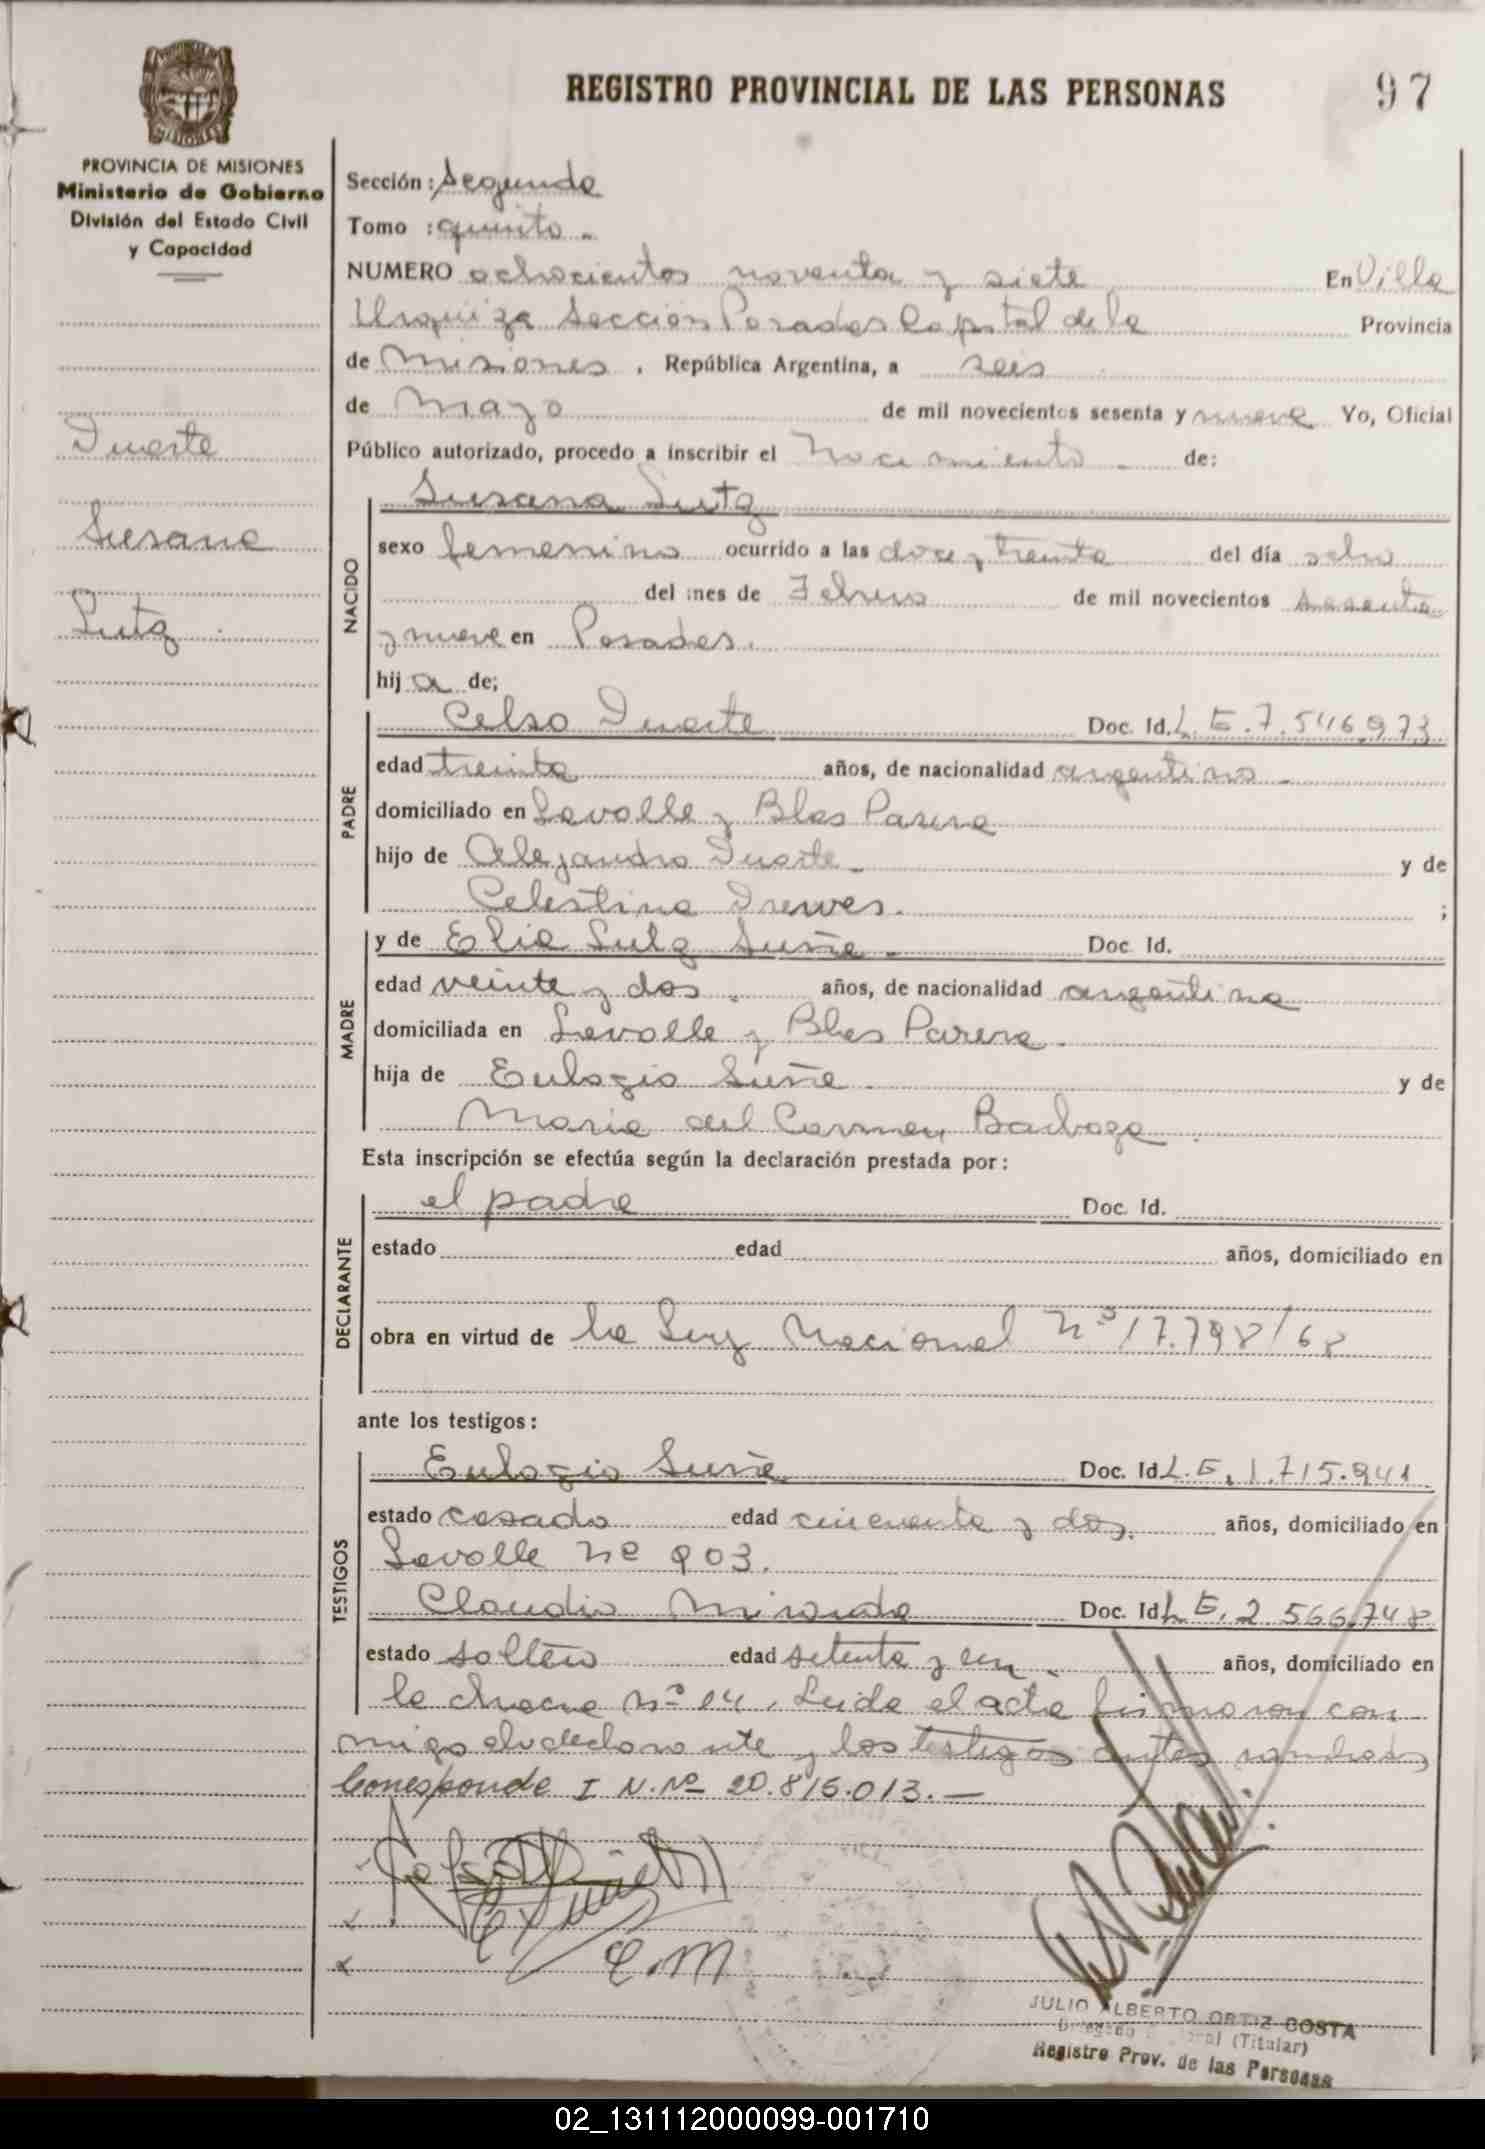 REGISTRO PROVINCIAL DE LAS PERSONAS
97
PROVINCIA DE MISIONES
Ministerio de Gobierno
División del Estado Civil
y Capacidad
Duarte
Susana
Lutz
Sección: Segunda
Tomo : quinto -
NUMERO ochocientos noventa y siete En Villa
Urquiza Sección Posadas Capital de la Provincia
de Misiones, República Argentina, a seis
de Mayo de mil novecientos sesenta y nueve Yo, Oficial
Público autorizado, procedo a inscribir el Nacimiento - de:
NACIDO
Susana Lutz
sexo femenino ocurrido a las doce y treinta del día ocho
del mes de Febrero de mil novecientos sesenta
y nueve en Posadas.
hij a de;
PADRE
Celso Duarte Doc. Id. L.E. 7.546.973
edad treinta años, de nacionalidad argentino -
domiciliado en Lavalle y Blas Parera
hijo de Alejandro Duarte - y de
Celestina Drewes. ;
MADRE
y de Elia Luz Suñe - Doc. Id.
edad veinte y dos - años, de nacionalidad argentina
domiciliada en Lavalle y Blas Parera.
hija de Eulogio Suñe. y de
Maria del Carmen Barboza.
Esta inscripción se efectúa según la declaración prestada por:
DECLARANTE
el padre Doc. Id.
estado edad años, domiciliado en
obra en virtud de la Ley Nacional Nº 17.798/68
ante los testigos:
TESTIGOS
Eulogio Suñe Doc. Id L.E. 1.715.941
estado casado edad cincuenta y dos. años, domiciliado en
Lavalle Nº 903.
Claudio Miranda Doc. Id L.E. 2.566.748
estado soltero edad setenta y un - años, domiciliado en
la chacra Nº 14. Leida el acta firmaron con-
migo el declarante y los testigos antes nombrados
Corresponde I N. Nº 20.815.013. —
C.M
JULIO ALBERTO ORTIZ COSTA
(Titular)
Registro Prov. de las Personas
02_131112000099-001710